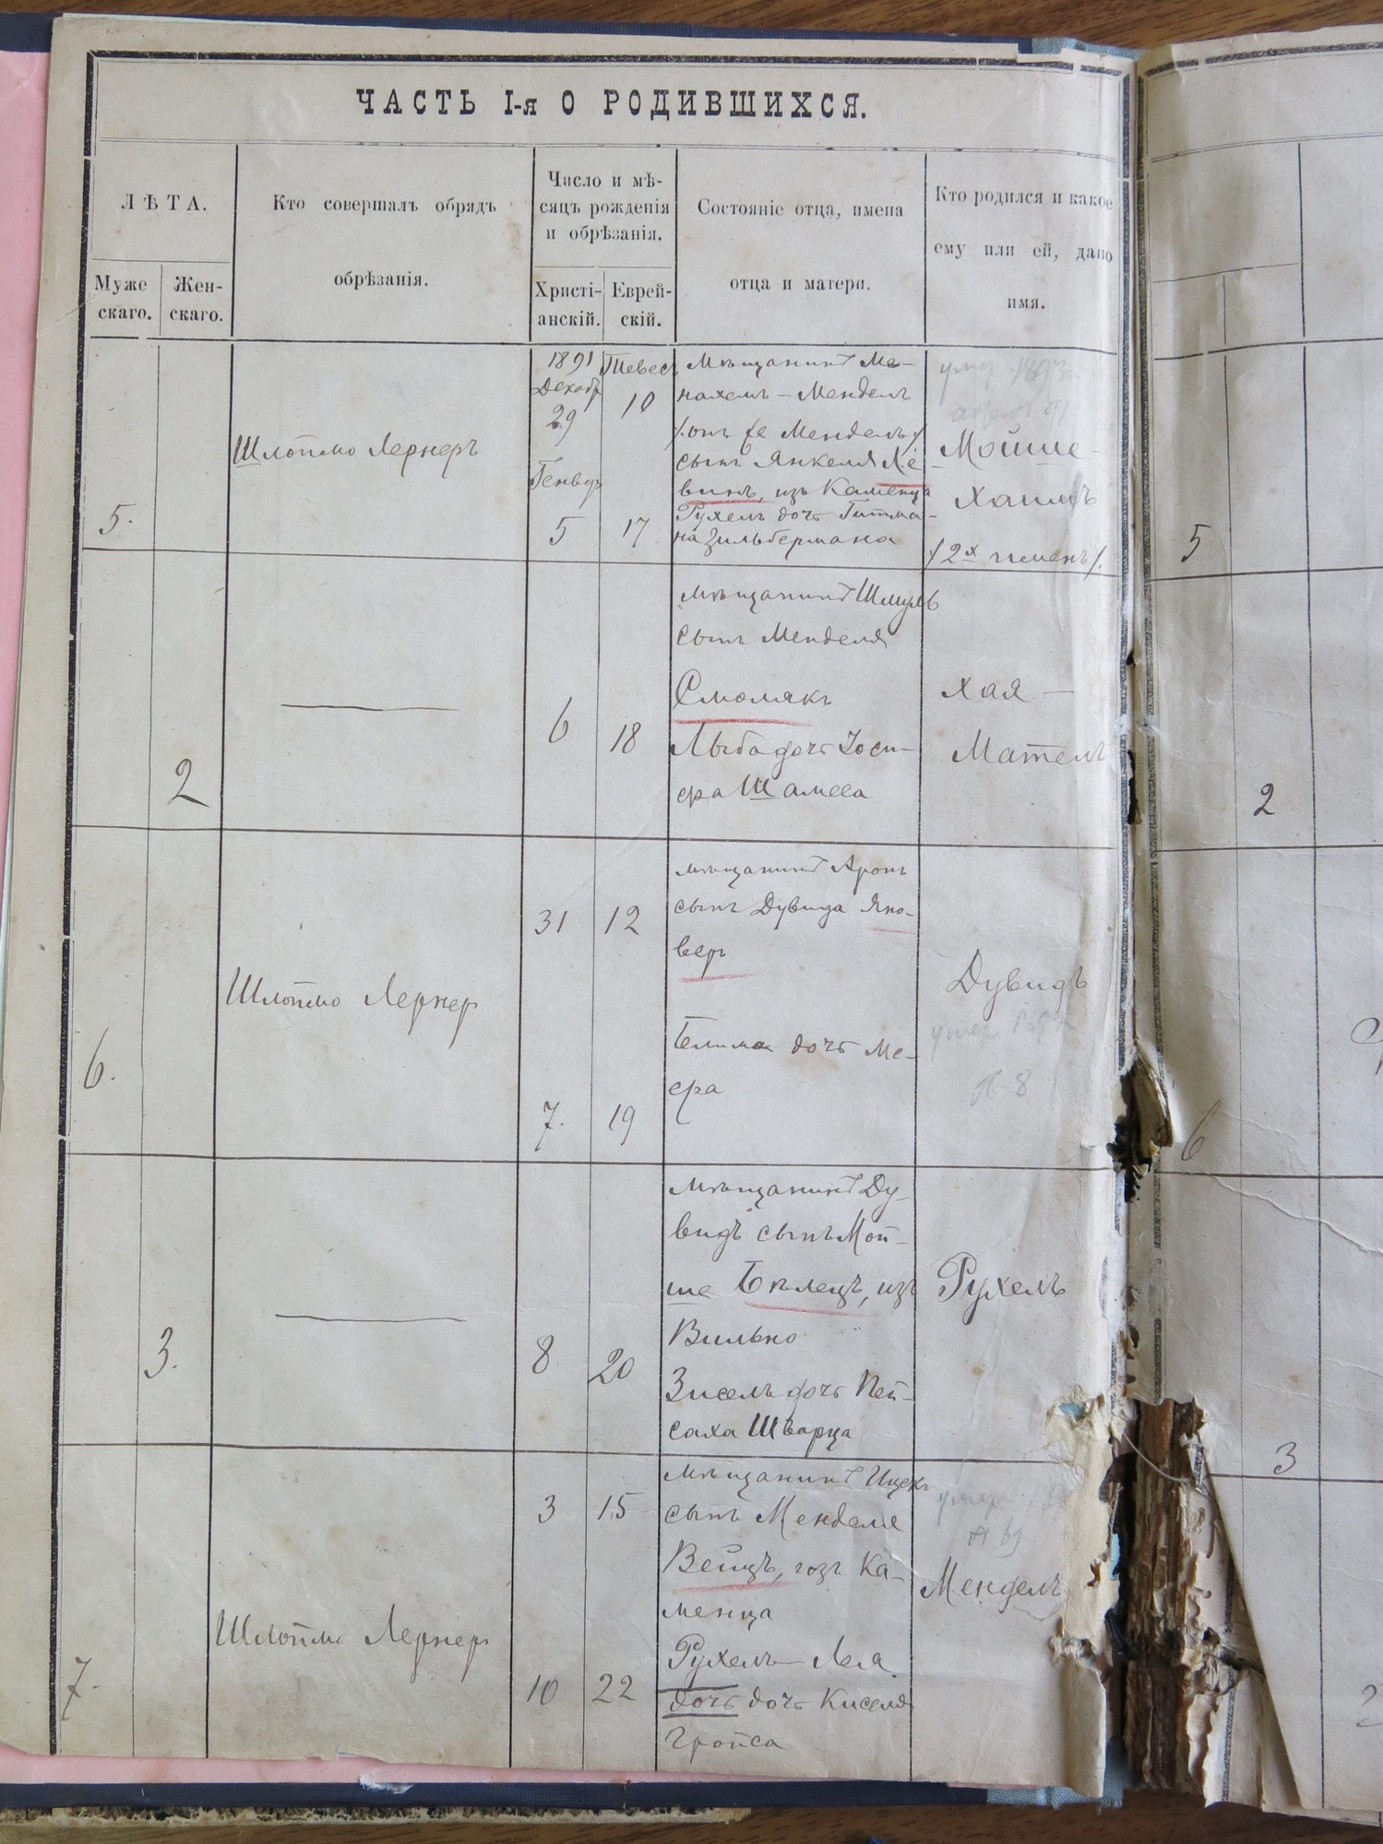 ЧАСТЬ I-я О РОДИВШИХСЯ.
ЛѢТА.
Муже
скаго.
Жен-
скаго.
Кто совершалъ обрядъ
обрѣзанія.
Число и мѣ-
сяцъ рожденія
и обрѣзанія.
Христі-
анскій.
Еврей-
скій.
Состояніе отца, имена
отца и матери.
Кто родился и какое
ему или ей, дано
имя.
5.
Шлоймо Лернеръ
1891
Декабр
29
Генвар
5
Тевес
10
17
Мѣщанинъ Ме-
нахемъ - Мендель
/: онъ же Мендель :/
сынъ Янкеля Ле-
винъ, изъ Каменца
Рухель дочь Гитма-
на Зильбермана
умер 1893
Мойше -
Хаимъ
/2х именъ/.
2
6
18
мѣщанинъ Шмуль
сынъ Менделя
Смолякъ
Лыба дочь Іоси-
фа Шамеса
Хая -
Матель
6.
Шлоймо Лернер
31
12
7.
19
мѣщанинъ Аронъ
сынъ Дувида Яно-
веръ
дочь Ме-
ера
Дувидъ
умер
№ 8
3.
8
20
мѣщанинъ Ду-
видъ сынъ Мой-
ше Бѣлецъ, изъ
Вильно
Зисель дочь Пей-
саха Шварца
Рухель
7.
Шлойме Лернер
3
15
10
22
мѣщанинъ Ицек
сынъ Менделя
Вейцъ, изъ Ка-
менца
Рухель - Лея
дочь дочь Киселя
Гройса
умер
№ 69
Мендель
5
2
6
3
2